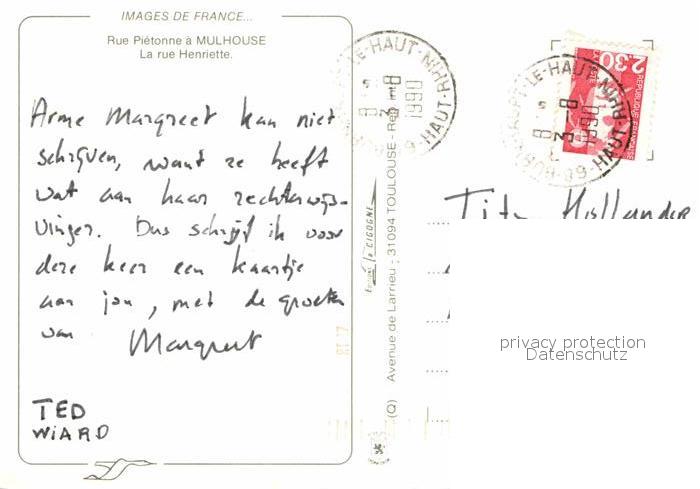 IMAGES DE FRANCE...
Rue Piétonne à MULHOUSE
La rue Henriette.
Arme Margreet kan niet
schrijven, want ze heeft
wat aan haar rechterwijs-
vinger. Dus schrijf ik voor
deze keer een kaartje
aan jou, met de groeten
van Margreet
TED
WIARD
Avenue de Larrieu - 31094 TOULOUSE - Rep. int.
(Q)
la CIGOGNE
LE-HAUT
HAUT-RHIN
68
8
1990
2,30
REPUBLIQUE FRANÇAISE
POSTE
LE-HAUT
HAUT-RHIN
68
1990
Hollander
privacy protection
Datenschutz